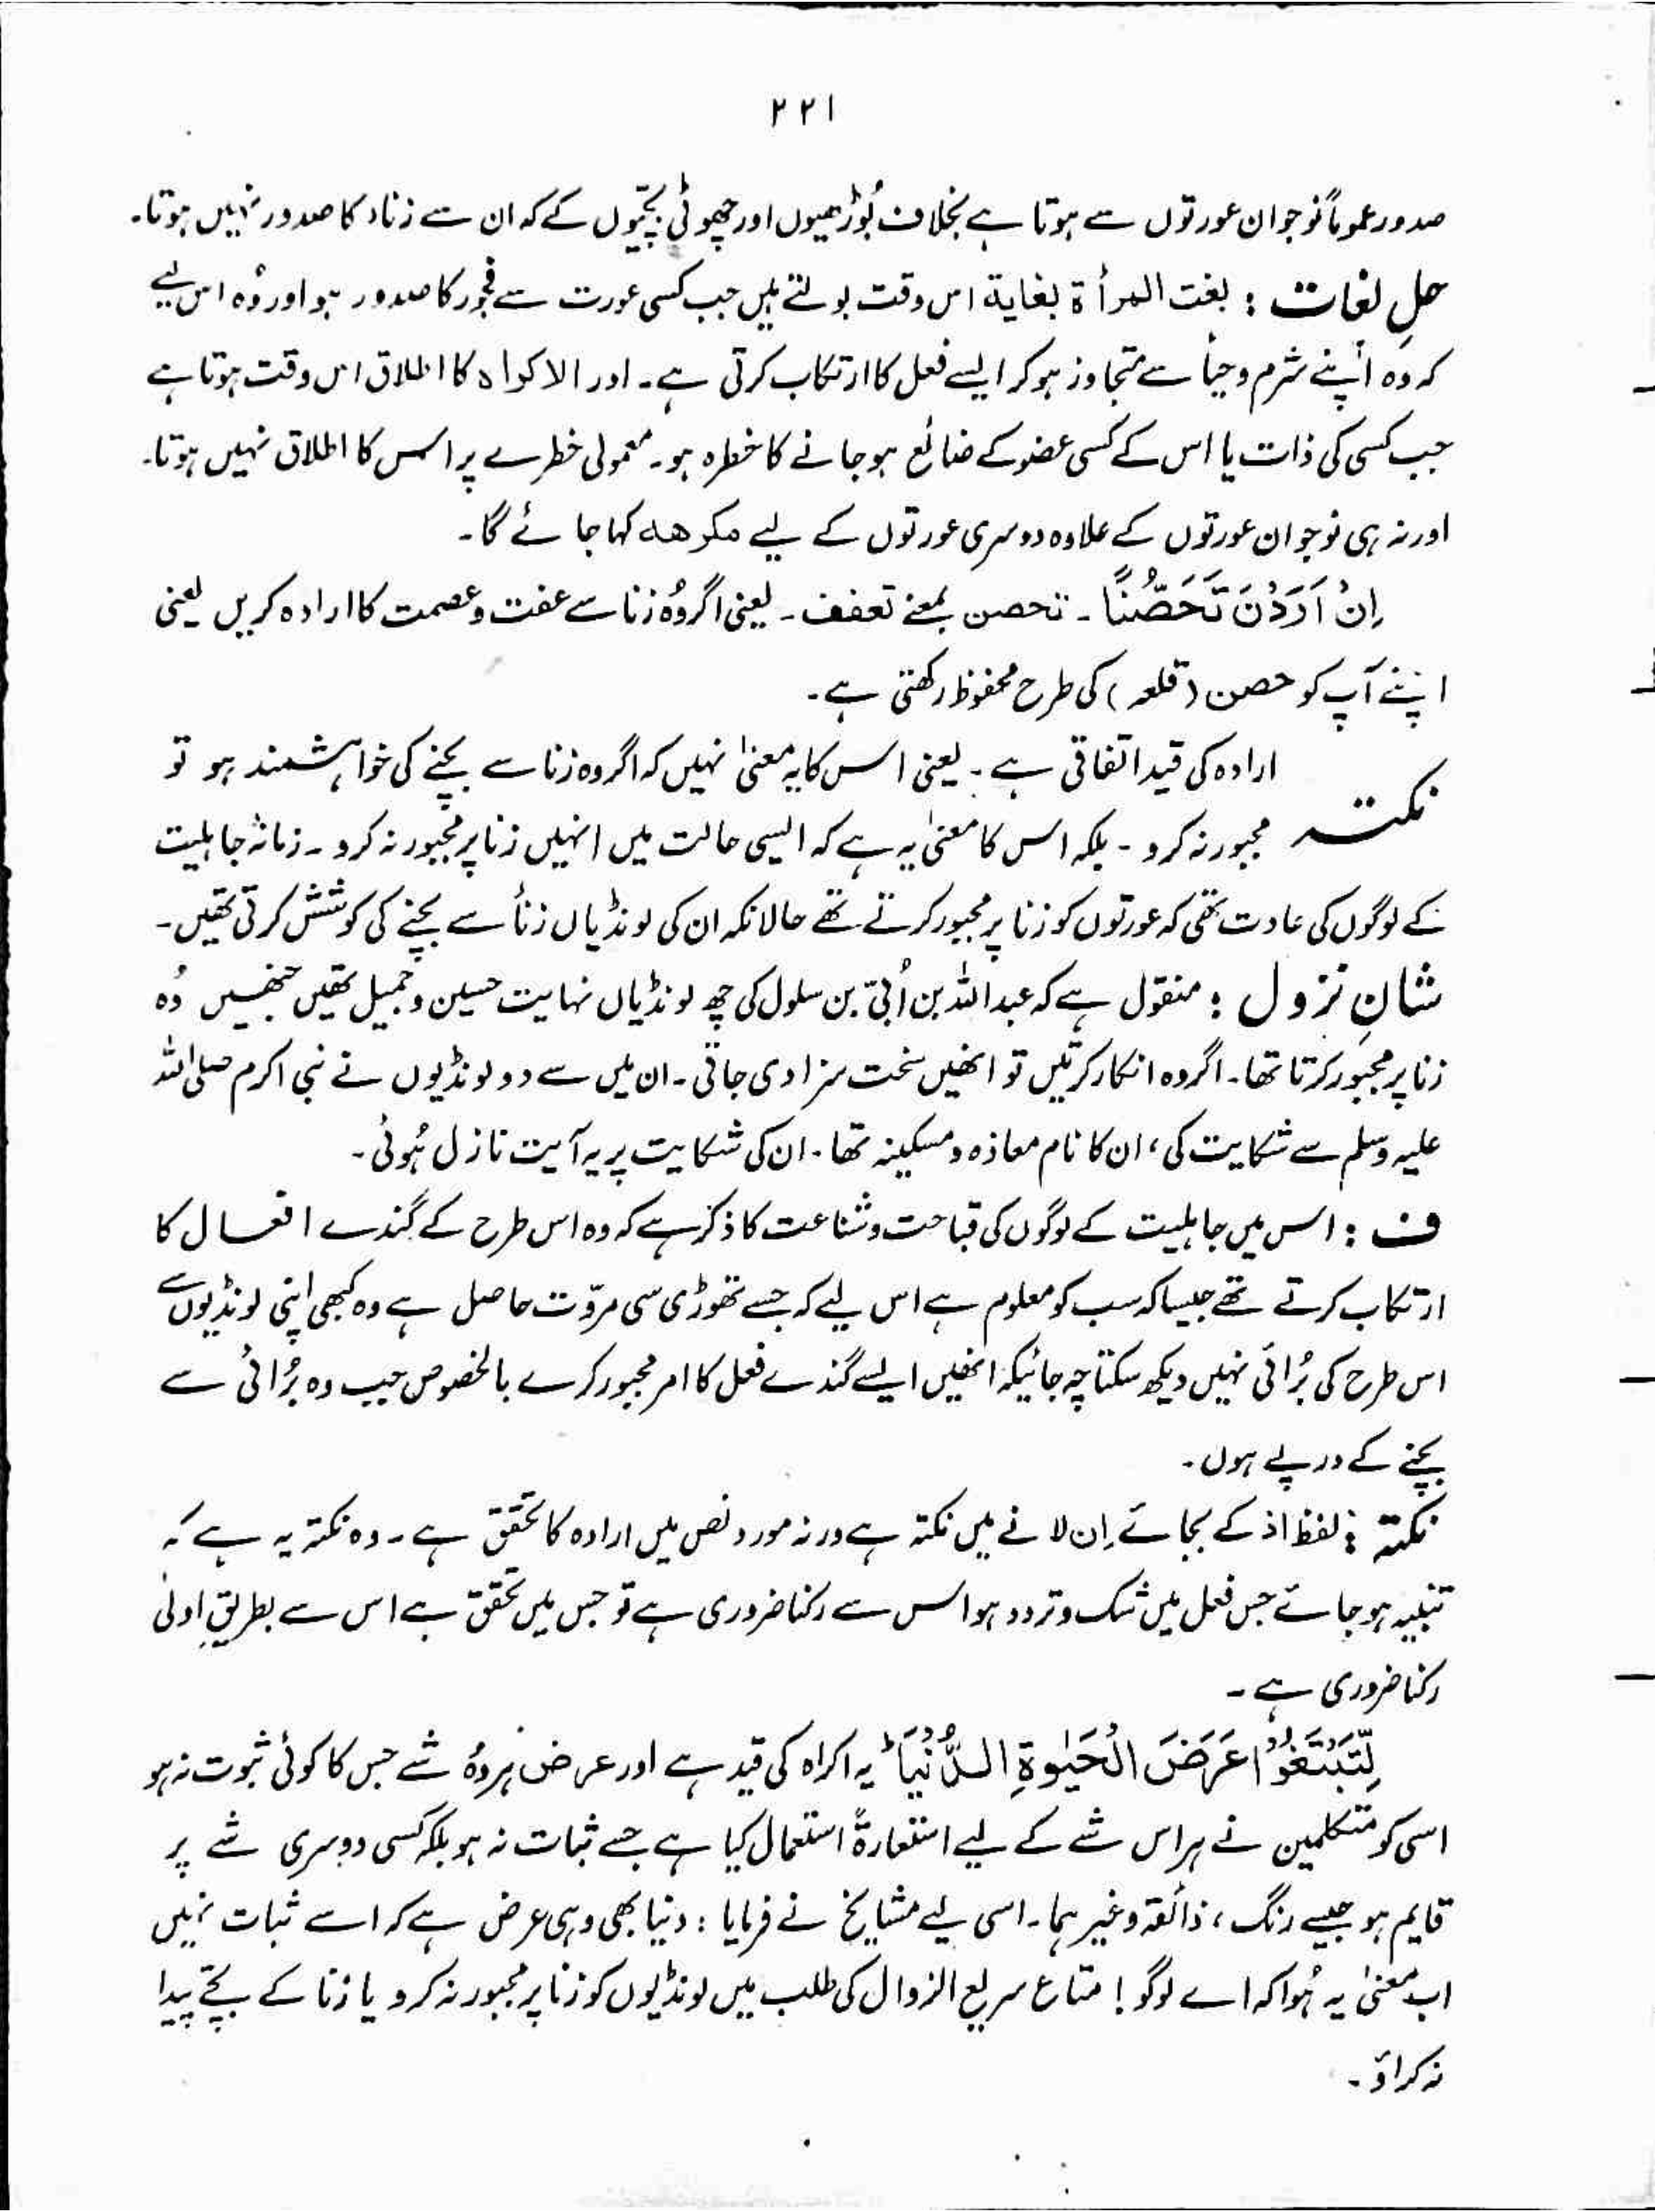 ۲۲۱
صدور عموماً نوجوان عورتوں سے ہوتا ہے بخلاف بُوڑھیوں اور چھوٹی بچّیوں کے کہ ان سے زناء کا صدور نہیں ہوتا۔
حلِ لغات : بغت المرأة بغایة اس وقت بولتے ہیں جب کسی عورت سے فجور کا صدور ہو اور وُہ اس لیے
کہ وُہ اپنے شرم و حیأ سے متجاوز ہو کر ایسے فعل کا ارتکاب کرتی ہے۔ اور الاکراہ کا اطلاق اس وقت ہوتا ہے
جب کسی کی ذات یا اس کے کسی عضو کے ضائع ہو جانے کا خطرہ ہو۔ معمولی خطرے پر اس کا اطلاق نہیں ہوتا۔
اور نہ ہی نوجوان عورتوں کے علاوہ دوسری عورتوں کے لیے مکرھہ کہا جائے گا۔
اِنْ اَرَدْنَ تَحَصُّنًا ۔ تحصن بمعنے تعفف ۔ یعنی اگر وُہ زنا سے عفت و عصمت کا ارادہ کریں یعنی
اپنے آپ کو حصن (قلعہ) کی طرح محفوظ رکھتی ہے۔
ارادہ کی قید اتفاقی ہے ۔ یعنی اس کا یہ معنیٰ نہیں کہ اگر وہ زنا سے بچنے کی خواہشمند ہو تو
نکتہ مجبور نہ کرو ۔ بلکہ اس کا معنیٰ یہ ہے کہ ایسی حالت میں انہیں زنا پر مجبور نہ کرو ۔ زمانۂ جاہلیت
کے لوگوں کی عادت تھی کہ عورتوں کو زنا پر مجبور کرتے تھے حالانکہ ان کی لونڈیاں زنأ سے بچنے کی کوشش کرتی تھیں۔
شانِ نزول : منقول ہے کہ عبداللہ بن اُبَیّ بن سلول کی چھ لونڈیاں نہایت حسین و جمیل تھیں جنھیں وُہ
زنا پر مجبور کرتا تھا۔ اگر وہ انکار کرتیں تو انھیں سخت سزا دی جاتی۔ ان میں سے دو لونڈیوں نے نبی اکرم صلی اللہ
علیہ وسلم سے شکایت کی، ان کا نام معاذہ و مسکینہ تھا۔ ان کی شکایت پر یہ آیت نازل ہُوئی۔
ف : اس میں جاہلیت کے لوگوں کی قباحت و شناعت کا ذکر ہے کہ وہ اس طرح کے گندے افعال کا
ارتکاب کرتے تھے جیسا کہ سب کو معلوم ہے اس لیے کہ جسے تھوڑی سی مروّت حاصل ہے وہ کبھی اپنی لونڈیوں سے
اس طرح کی بُرائی نہیں دیکھ سکتا چہ جائیکہ انھیں ایسے گندے فعل کا امر مجبور کرے بالخصوص جب وہ بُرائی سے
بچنے کے درپے ہوں۔
نکتہ : لفظ اذ کے بجائے اِن لانے میں نکتہ ہے ورنہ مورد نص میں ارادہ کا تحقق ہے۔ وہ نکتہ یہ ہے کہ
تنبیہ ہو جائے جس فعل میں شک و تردد ہو اس سے رکنا ضروری ہے تو جس میں تحقق ہے اس سے بطریقِ اولیٰ
رکنا ضروری ہے ۔
لِّتَبْتَغُوْا عَرَضَ الْحَیٰوةِ الدُّنْیَا ؕ یہ اکراہ کی قید ہے اور عرض ہر وُہ شے جس کا کوئی ثبوت نہ ہو
اسی کو متکلمین نے ہر اس شے کے لیے استعارةً استعمال کیا ہے جسے ثبات نہ ہو بلکہ کسی دوسری شے پر
قایم ہو جیسے رنگ، ذائقہ وغیرہما۔ اسی لیے مشایخ نے فرمایا : دنیا بھی وہی عرض ہے کہ اسے ثبات نہیں
اب معنیٰ یہ ہُوا کہ اے لوگو ! متاع سریع الزوال کی طلب میں لونڈیوں کو زنا پر مجبور نہ کرو یا زنا کے بچّے پیدا
نہ کراؤ ۔